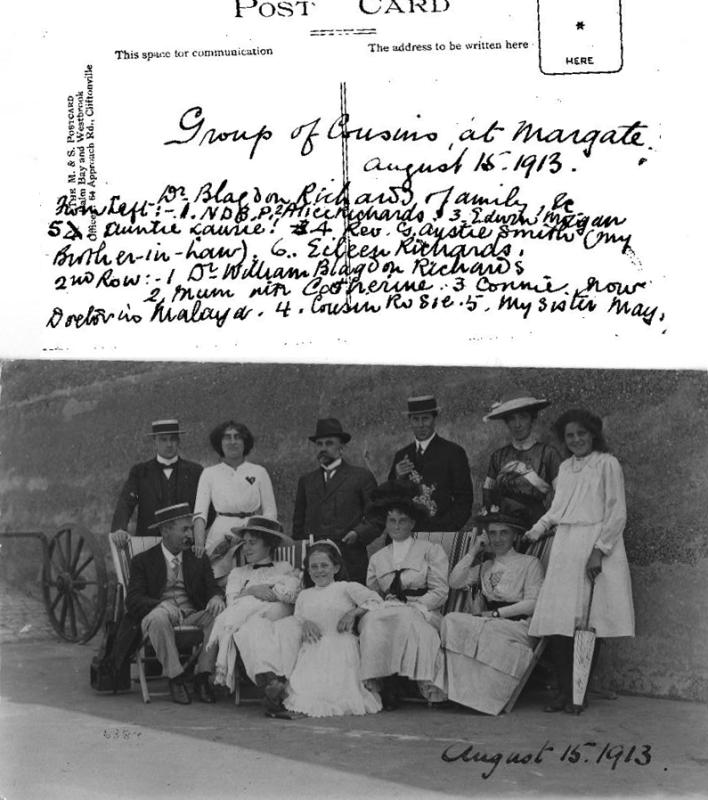 POST CARD
This space for communication
The address to be written here
*
HERE
THE M. & S. POSTCARD
Palm Bay and Westbrook
Offices, 64 Approach Rd., Cliftonville
Group of Cousins, at Margate.
August 15. 1913.
Dr Blagdon Richards, family, &c
From Left:- 1. N.D.B.P. 2 Alice Richards. 3. Edwin Morgan
5 Auntie Laurie. 4. Rev. G. Austie Smith (my
Brother-in-law). 6. Eileen Richards.
2nd Row:- 1 Dr William Blagdon Richards
2, Mum with Catherine. 3 Connie, now
Doctor in Malaya. 4. Cousin Rosie. 5. My Sister May.
August 15. 1913